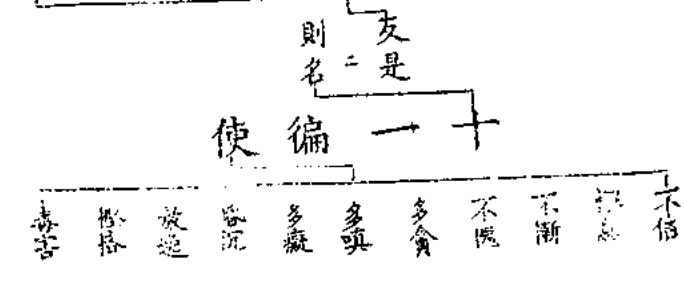 友是
二
則名
十一徧使
不信
不漸
不愧
多貪
多嗔
多癡
昏沉
放逸
毒害